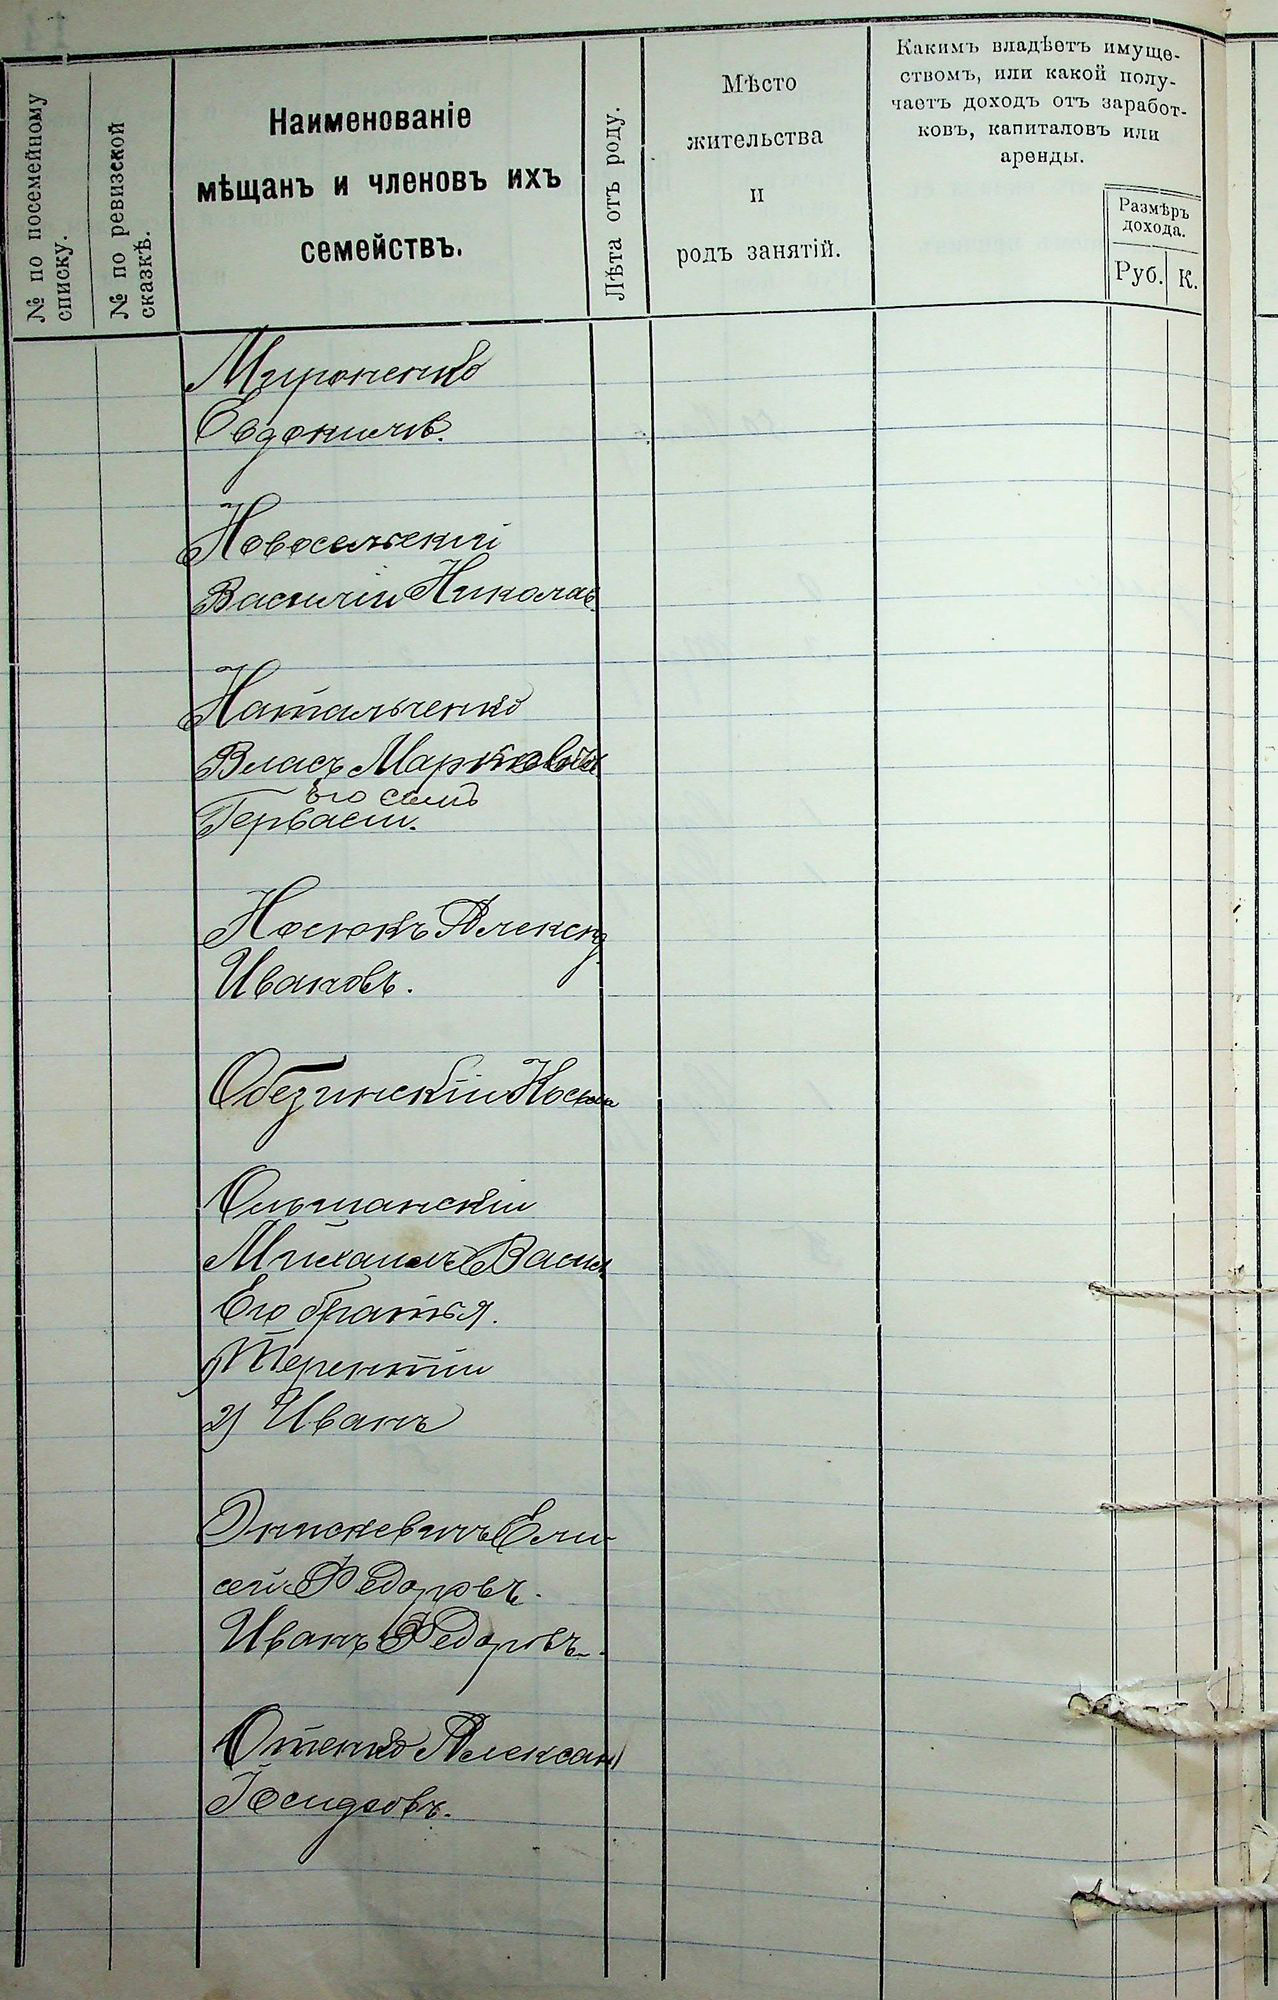 № по посемейному
списку.
№ по ревизской
сказкѣ.
Наименованіе
мѣщанъ и членовъ ихъ
семействъ.
Лѣта отъ роду.
Мѣсто
жительства
и
родъ занятій.
Какимъ владѣетъ имуще-
ствомъ, или какой полу-
чаетъ доходъ отъ заработ-
ковъ, капиталовъ или
аренды.
Размѣръ
дохода.
Руб. К.
Мироненко
Евдокимъ.
Новосельскій
Василій Николаев
Натальченко
Власъ Марковъ
его сынъ
Гервасій.
Носюкъ Александ
Ивановъ.
Обезинскій Косьма
Ольшанскій
Михаилъ Васил
Его братья.
1) Терентій
2) Иванъ
Онискевичъ Ели-
сей Федоровъ.
Иванъ Федоровъ.
Отенко Алексан
Іосифовъ.